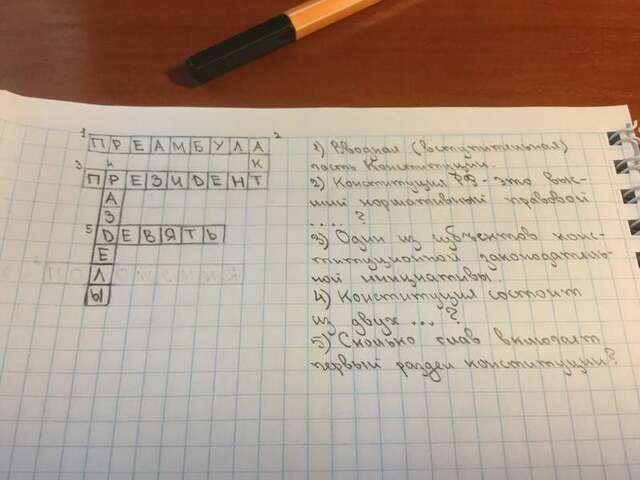 1 ПРЕАМБУЛА 2
4 К
3 ПРЕЗИДЕНТ
А
З
5 ДЕВЯТЬ
Е
Л
Ы
1) Вводная (вступительная)
часть Конституции.
2) Конституция РФ - это выс-
ший нормативный правовой
....?
3) Один из субъектов конс-
титуционной законодатель-
ной инициативы.
4) Конституция состоит
из двух ... ?
5) Сколько глав включает
первый раздел конституции?